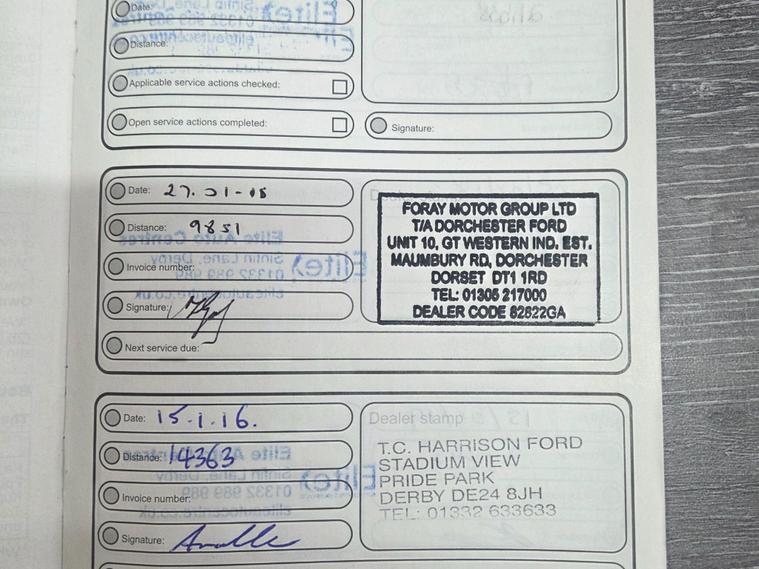 Date:
Distance:
Applicable service actions checked:
Open service actions completed:
Signature:
Date: 27.01-15
Distance: 9851
Invoice number:
Signature:
Next service due:
FORAY MOTOR GROUP LTD
T/A DORCHESTER FORD
UNIT 10, GT WESTERN IND. EST.
MAUMBURY RD, DORCHESTER
DORSET DT1 1RD
TEL: 01305 217000
DEALER CODE 82822GA
Date: 15.1.16.
Distance: 14363
Invoice number:
Signature:
Dealer stamp
T.C. HARRISON FORD
STADIUM VIEW
PRIDE PARK
DERBY DE24 8JH
TEL: 01332 633633